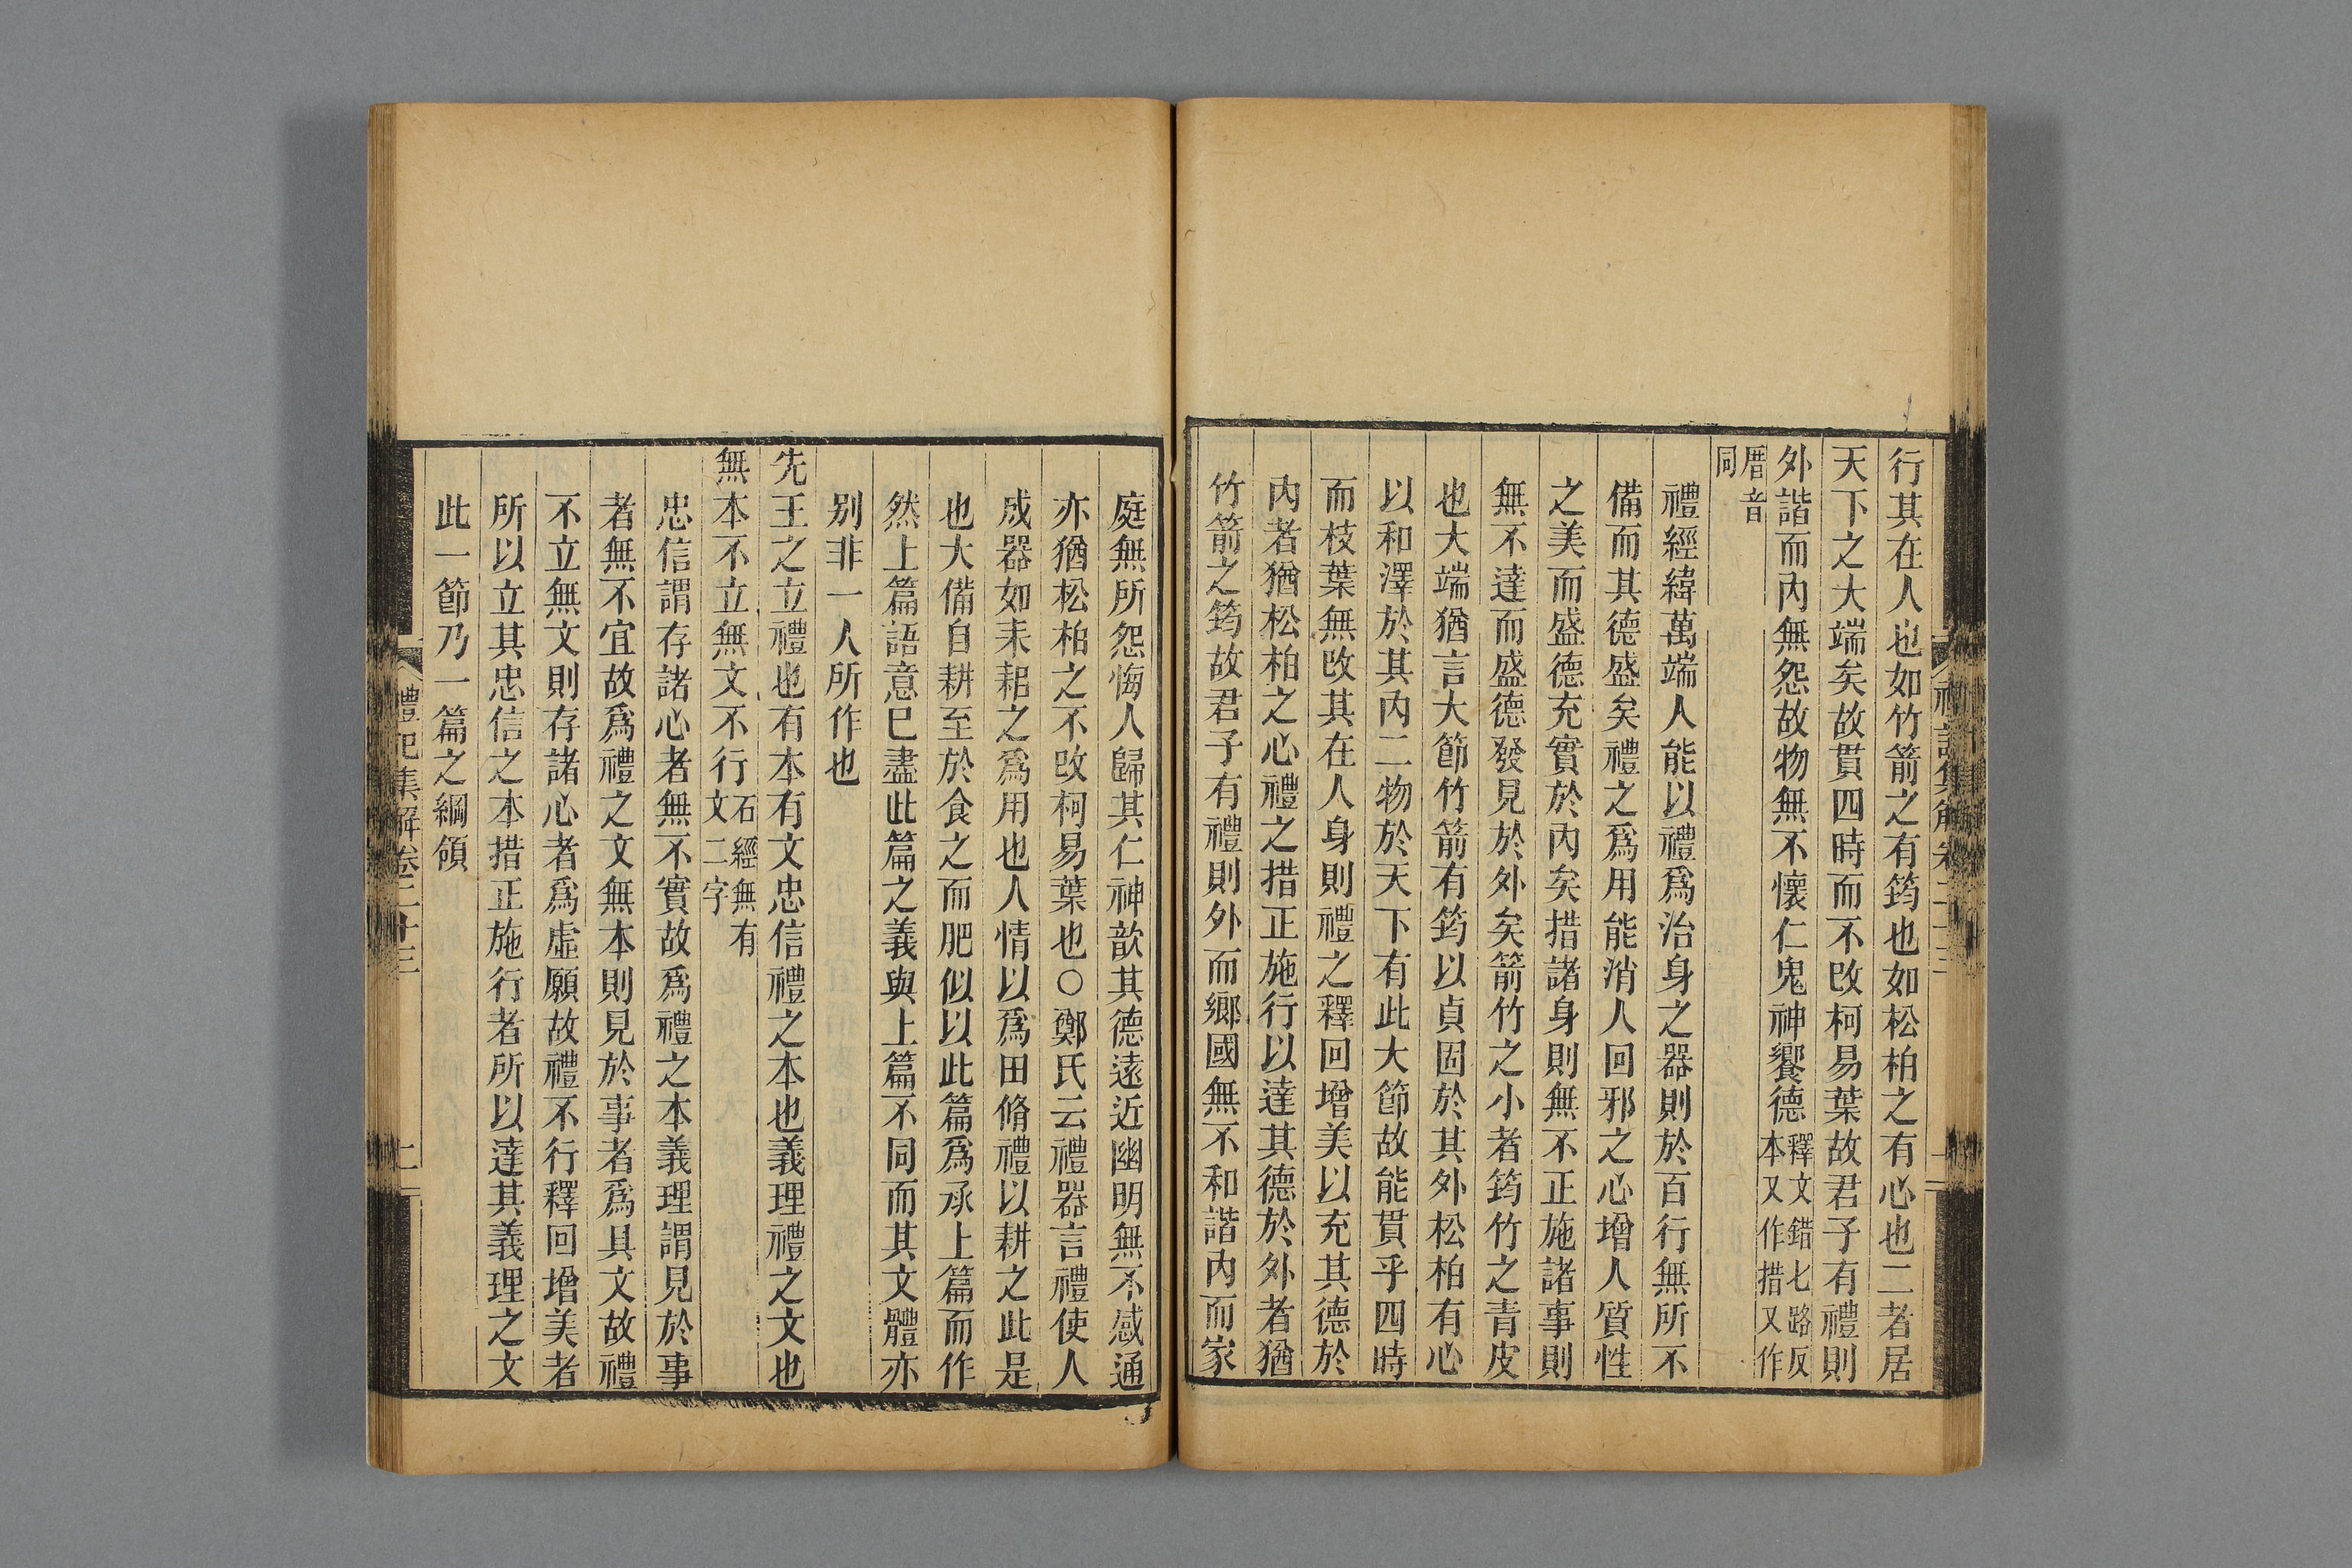 行其在人也如竹箭之有筠也如松柏之有心也二者居
天下之大端矣故貫四時而不改柯易葉故君子有禮則
外諧而內無怨故物無不懷仁鬼神饗德釋文錯七路反本又作措又作
厝音同
禮經緯萬端人能以禮爲治身之器則於百行無所不
備而其德盛矣禮之爲用能消人回邪之心增人質性
之美而盛德充實於內矣措諸身則無不正施諸事則
無不達而盛德發見於外矣箭竹之小者筠竹之青皮
也大端猶言大節竹箭有筠以貞固於其外松柏有心
以和澤於其內二物於天下有此大節故能貫乎四時
而枝葉無改其在人身則禮之釋回增美以充其德於
內者猶松柏之心禮之措正施行以達其德於外者猶
竹箭之筠故君子有禮則外而鄉國無不和諧內而家
庭無所怨悔人歸其仁神歆其德遠近幽明無不感通
亦猶松柏之不改柯易葉也○鄭氏云禮器言禮使人
成器如耒耜之爲用也人情以爲田脩禮以耕之此是
也大備自耕至於食之而肥似以此篇爲承上篇而作
然上篇語意已盡此篇之義與上篇不同而其文體亦
別非一人所作也
先王之立禮也有本有文忠信禮之本也義理禮之文也
無本不立無文不行石經無有文二字
忠信謂存諸心者無不實故爲禮之本義理謂見於事
者無不宜故爲禮之文無本則見於事者爲具文故禮
不立無文則存諸心者爲虛願故禮不行釋回增美者
所以立其忠信之本措正施行者所以達其義理之文
此一節乃一篇之綱領
禮記集解卷二十三
二